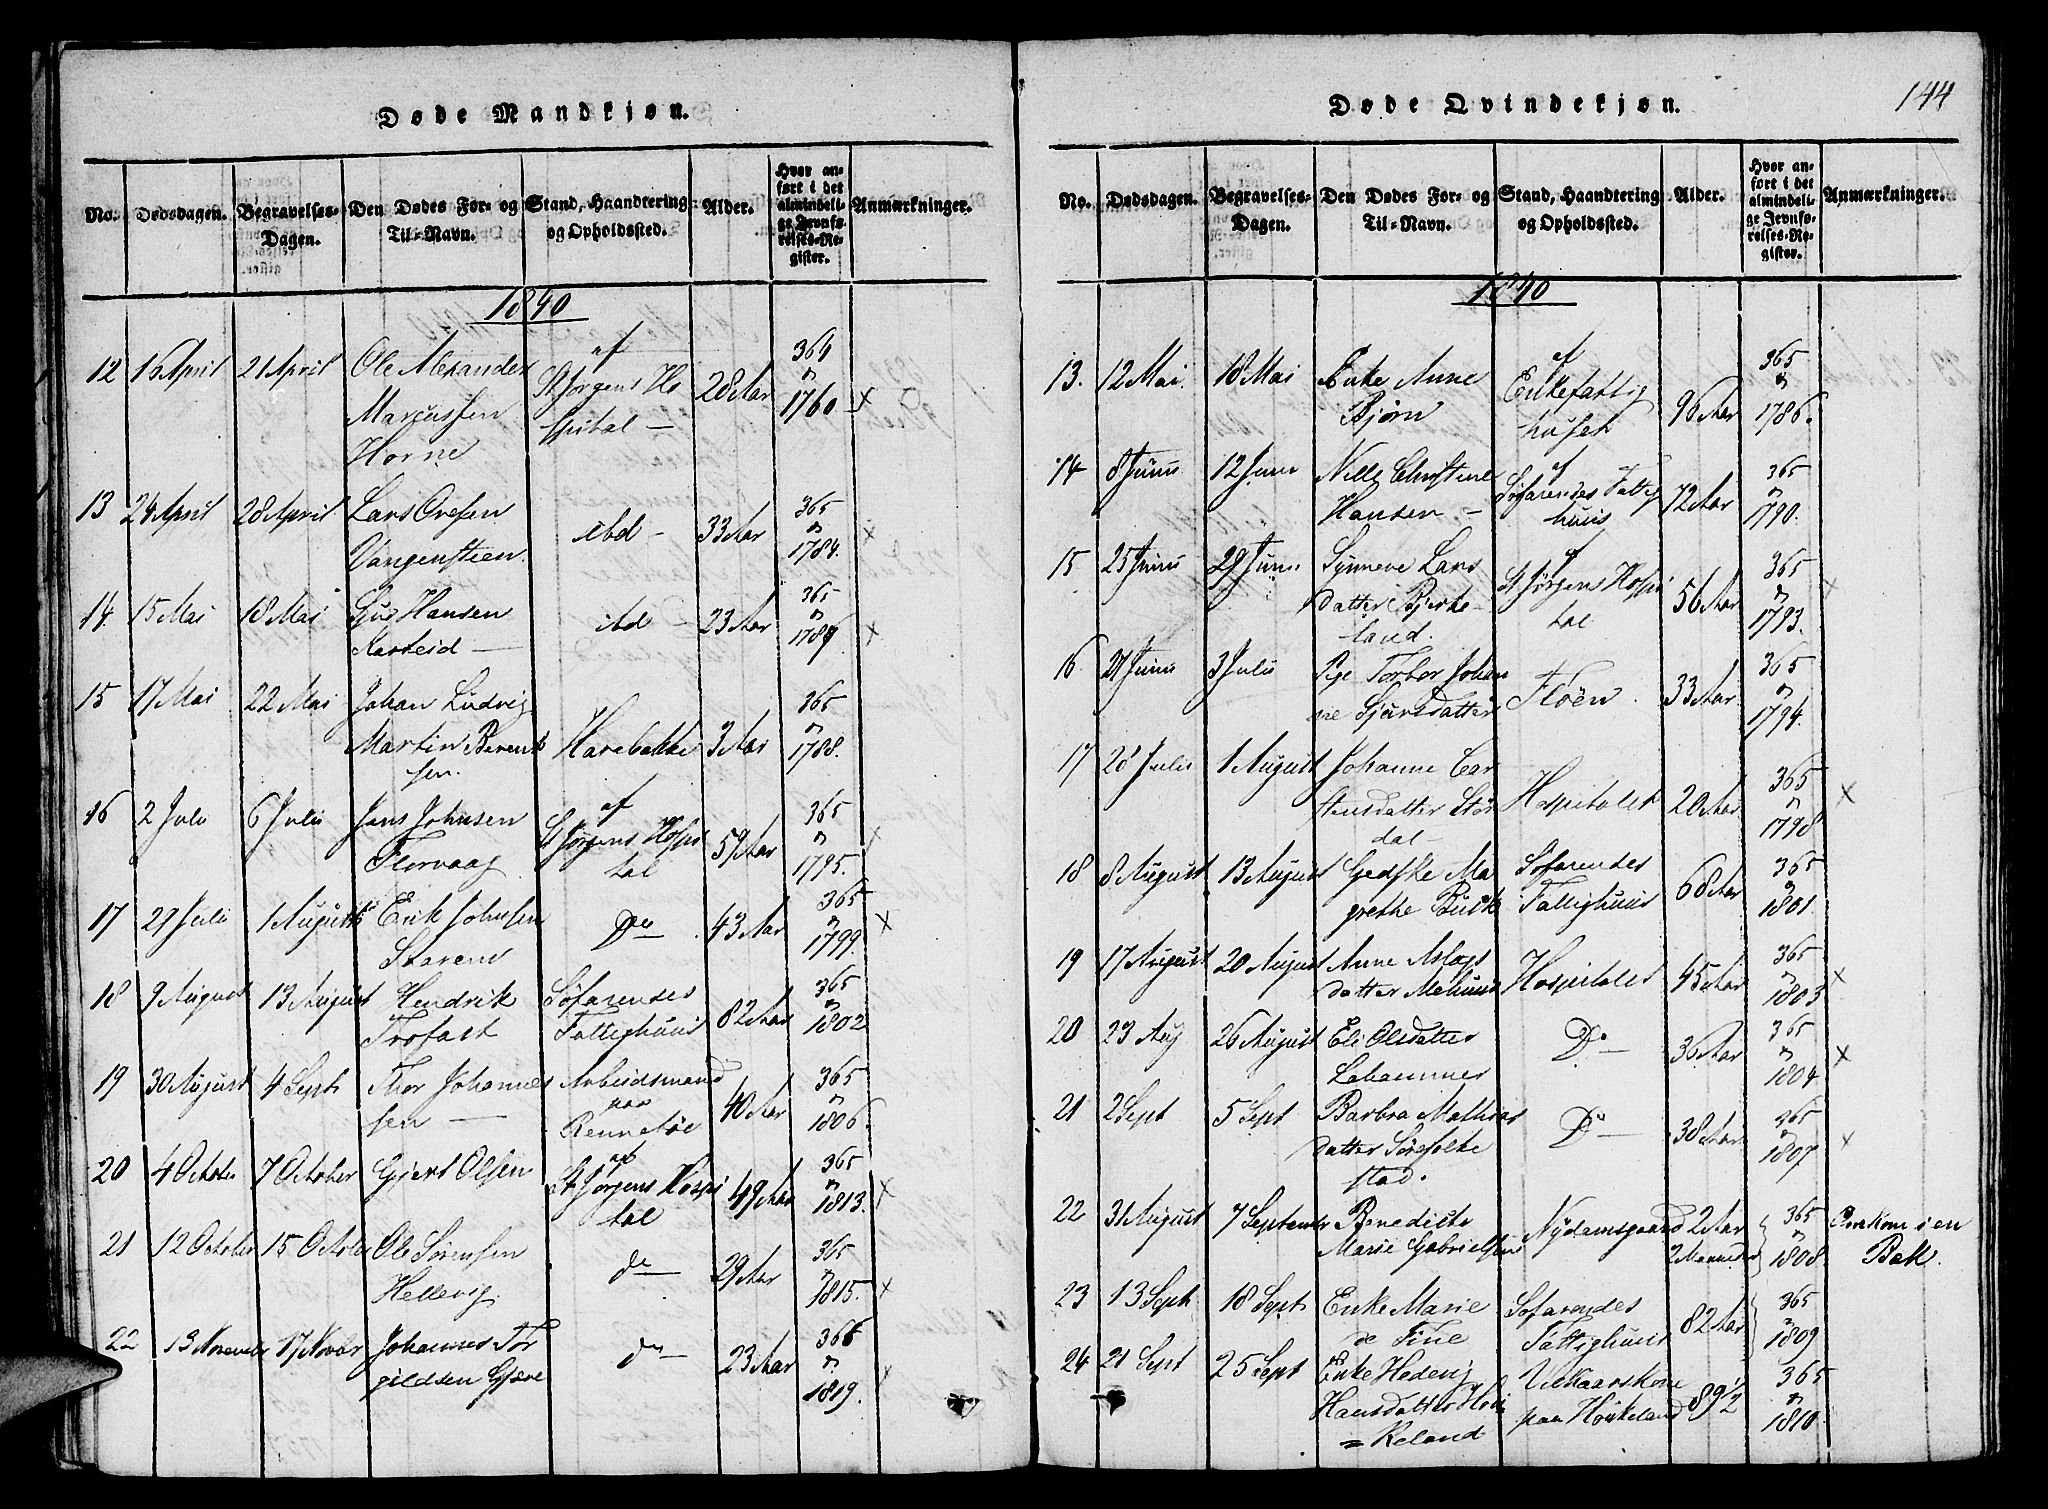 Døde Mandkjøn.
No. Dødsdagen. Begravelses-Dagen. Den Dødes For- og Til-Navn. Stand, Haandtering og Opholdssted. Alder. Hvor anført i det almindelige Jevnførelses-Register. Anmærkninger.
1840
12 16 April 21 April Ole Alexander af 28 Aar 364
Marcussen St Jørgens Ho n
Horne spital — 1760 x
13 24 April 28 April Lars Ovesen ibd — 33 Aar 365
Vangensteen n 1784. x
14. 15 Mai 18 Mai Hansen ibd — 23 Aar 365
n x
15 17 Mai 22 Mai Johan Ludvig 365
Martin Berent Harebakke 3 Aar n
sen. 1788.
16 2 Juli 6 Juli Jens Johnsen af 59 Aar 365
Flervaag St Jørgens Hospi n
tal 1795. x
17 27 Juli 1 August Erik Johnsen Do 43 Aar 365
n 1799. x
18 9 August 13 August Hendrik Søfarendes 82 Aar 365
Trofast Fattighuus n 1802
19 30 August 4 Sept Thor Johannes Arbeidsmand 40 Aar 365
sen — paa n
1806
20 4 October 7 October Gjert Olsen af 49 Aar 365
St Jørgens Hospi n
tal 1813. x
21 12 October 15 October Ole Sørensen do 29 Aar 365
Hellevig. n 1815. x
22 13 November 17 Novbr Johannes Tor do 23 Aar 366
gildsen n 1819. x
Døde Qvindekjøn.
144
No. Dødsdagen. Begravelses-Dagen. Den Dødes For- og Til-Navn. Stand, Haandtering og Opholdssted. Alder. Hvor anført i det almindelige Jevnførelses-Register. Anmærkninger.
1840
13. 12 Mai. 18 Mai Enke Anne af 96 Aar 365
Bjørn Enkefattig n
huset 1786.
14 8 Juni 12 Juni Nille Christine af 72 Aar 365
Hansen — Søfarendes Fattig n
huus 1790.
15 25 Juni 29 Juni Synneve Lars af 56 Aar 365
datter Bjerke- St Jørgens Hospi n
land. tal 1793. x
16 27 Juni 3 Juli Pge Torbor Johan Floen. 33 Aar 365
ne Sjursdatter n 1794.
17 28 Juli 1 August Johanne Car Hospitalet 20 Aar 365
stensdatter Stør n
dal — 1798 x
18 8 August 13 August Gedske Ma Søfarendes 68 Aar 365
grethe Fattighuus n 1801.
19 17 August 20 August Anne Aslags Hospitalet 45 Aar 365
datter n 1803 x
20 23 Aug 26 August Eli Olsdatter Do 36 Aar 365
Lahammer n 1804 x
21 2 Sept 5 Sept Barbra Mathias Do 38 Aar 365
datter n
stad. 1807 x
22 31 August 7 September Benedicte Nydamsgaard 2 Aar 365 Omkom i en
Marie Gabrielsen 2 Maaneder n 1808. Bæk.
23 13 Sept 18 Sept Enke Marie Søfarendes 82 Aar 365
de Fine Fattighuus n 1809
24 21 Sept 25 Sept Enke Hedevig Vilkaarskone 89½ 365
Hansdatter Høi paa n
= keland 1810.